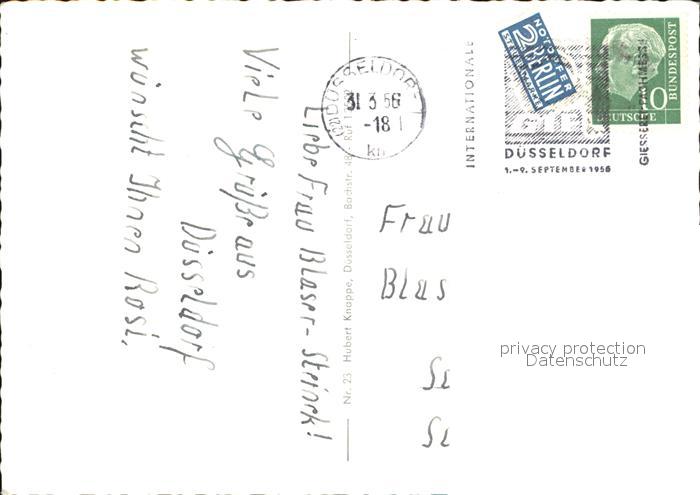 Liebe Frau Blaser-Steinck!
Viele Grüße aus
Düsseldorf
wünscht Ihnen Rosi.
Nr. 23 Hubert Knappe, Düsseldorf, Bachstr.
DÜSSELDORF
31 3 56
-18
INTERNATIONALE
NOTOPFER
2 BERLIN
STEUERMARKE
DÜSSELDORF
1.-9. SEPTEMBER 1956
DEUTSCHE
BUNDESPOST
Frau
Blas
privacy protection
Datenschutz